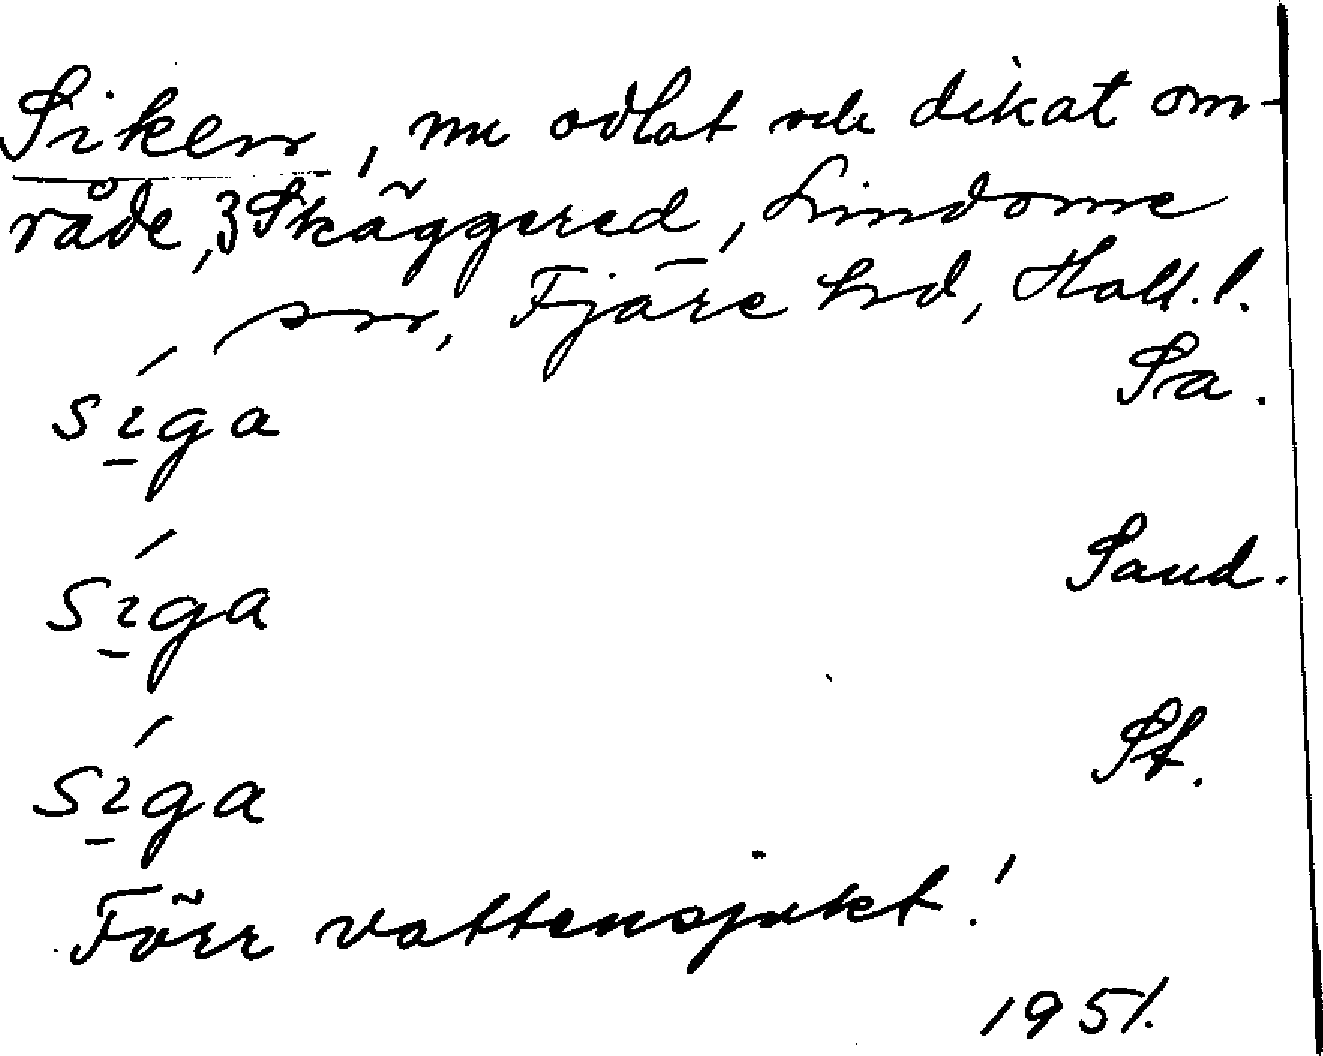 Siken, nu odlat och dikat om-
råde, 3 Skäggered, Lindome
sn, Fjäre hd, Hall. l.
síga Sa.
síga Sand.
síga St.
Förr vattensjukt!
1951.